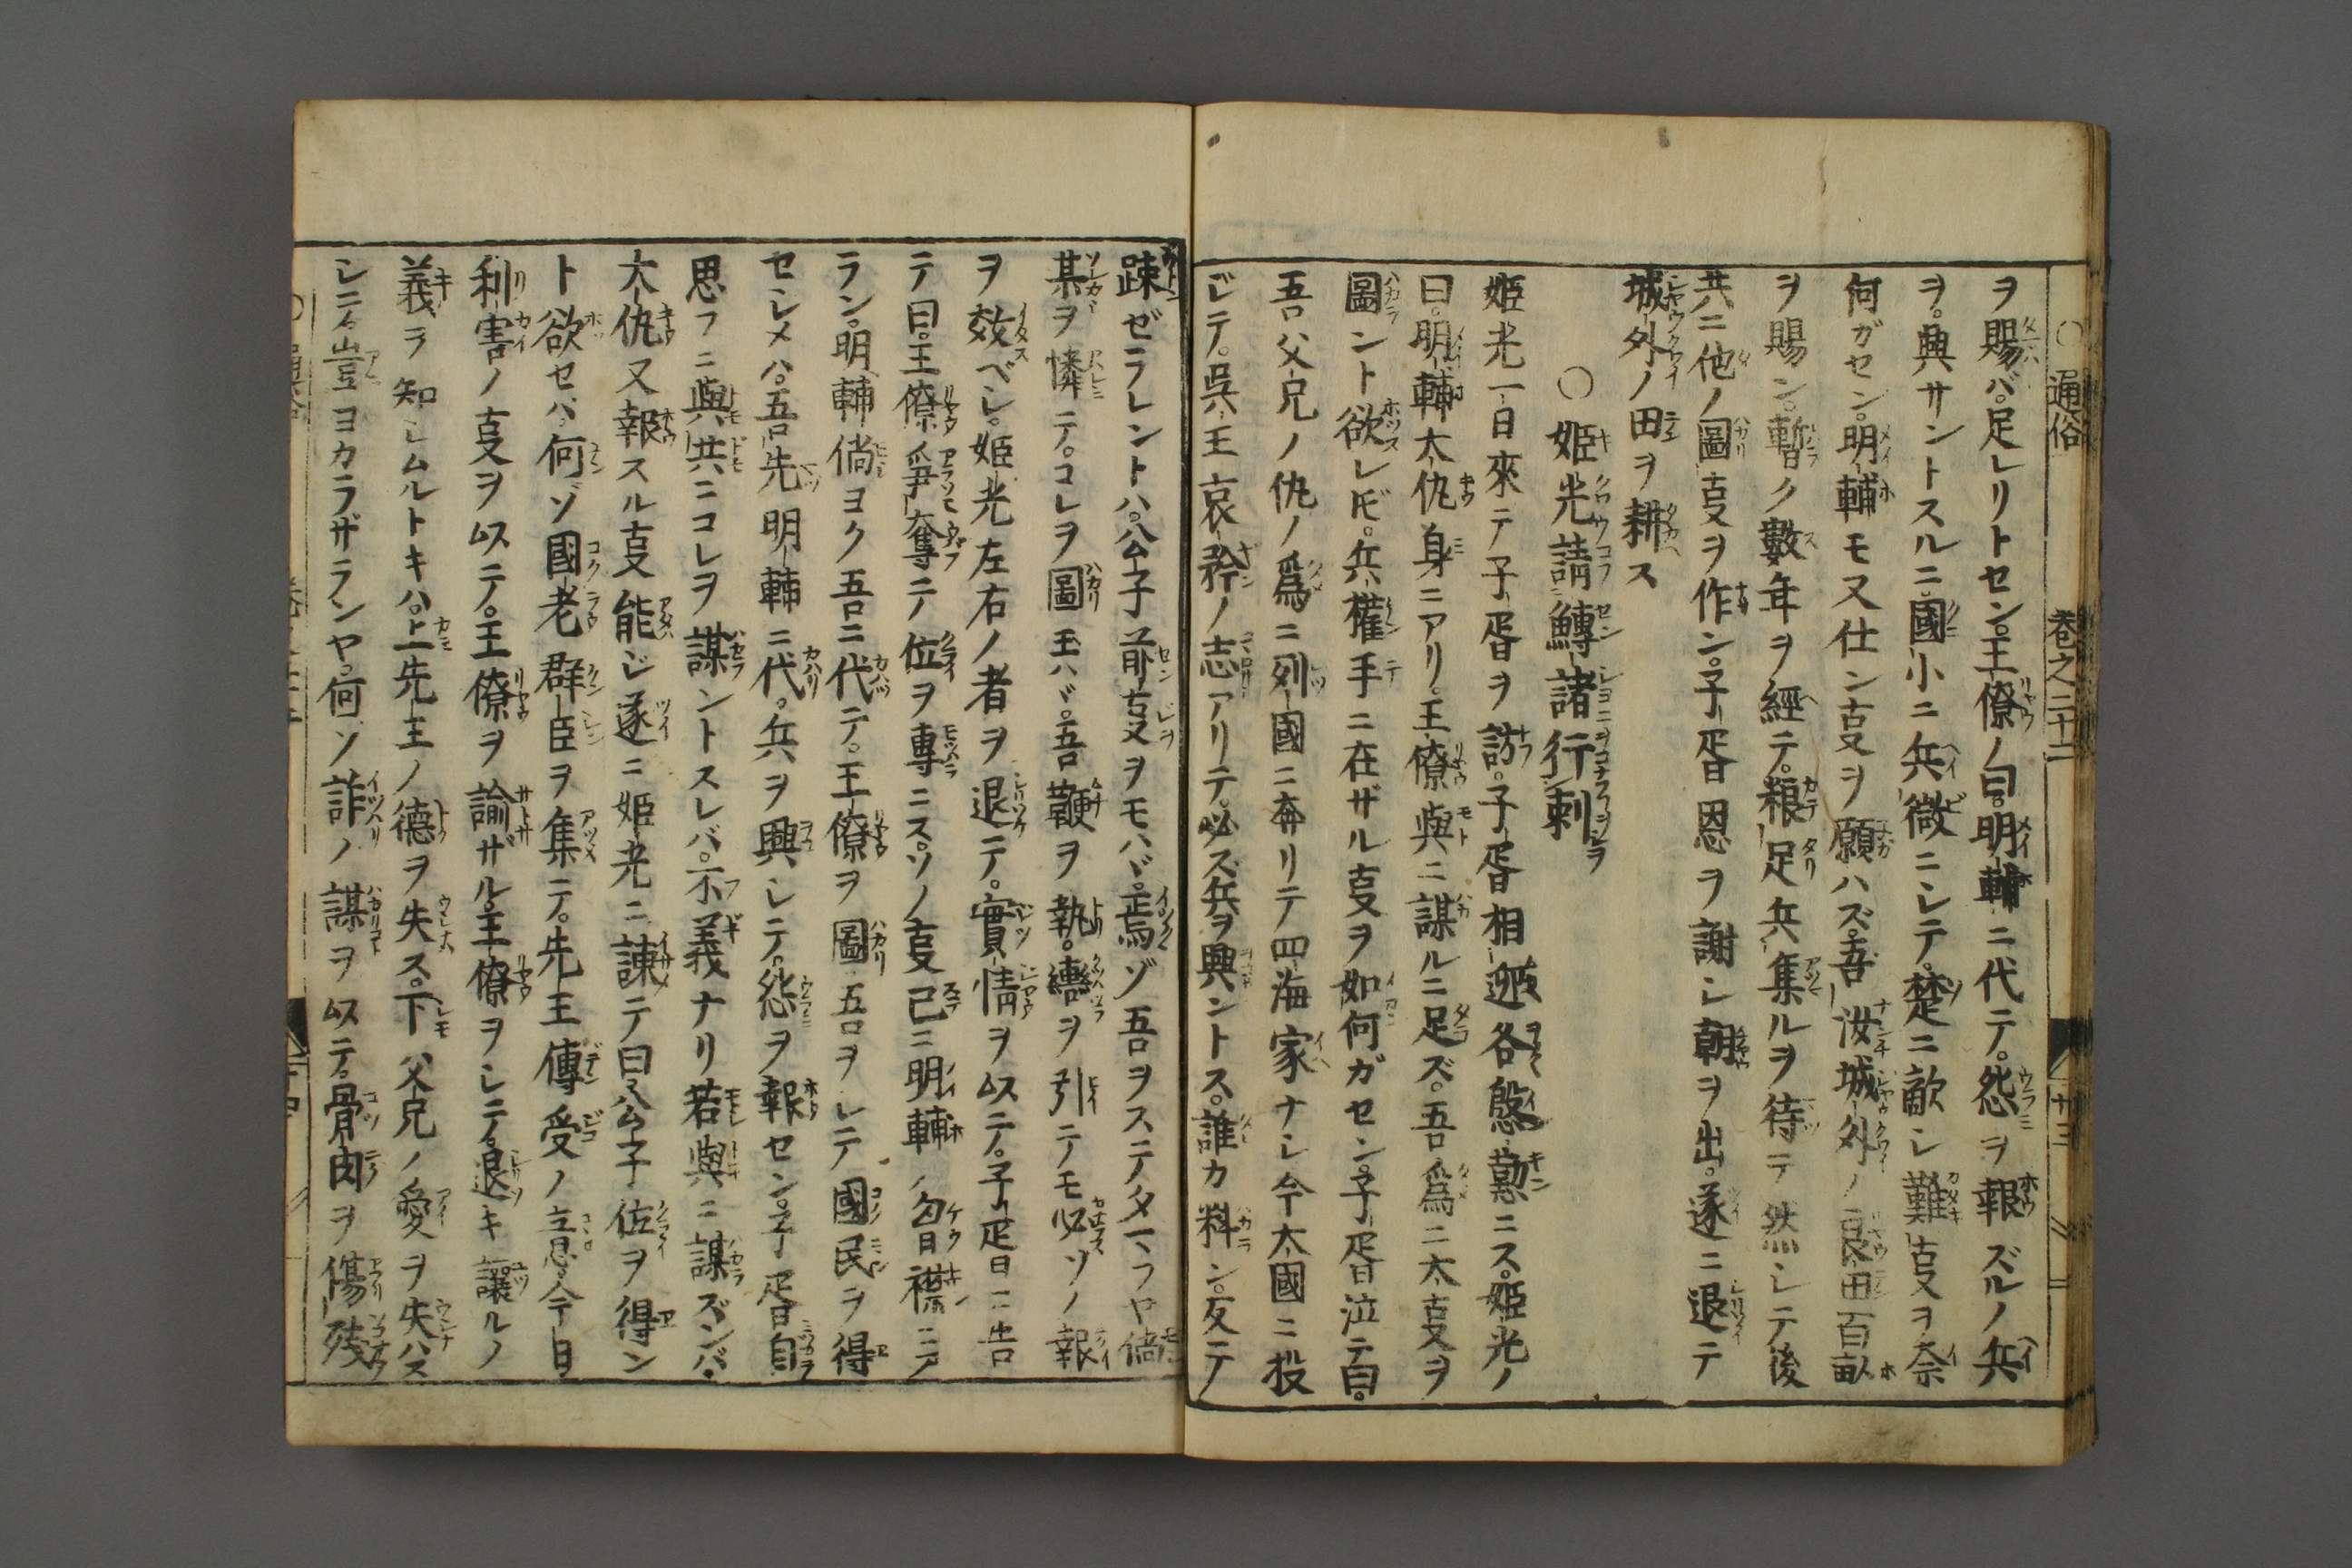 通俗 卷之二十二 十三
ヲ賜バ足レリトセン。王僚ノ曰。明輔ニ代テ。怨ヲ報ズルノ兵
ヲ。興サントスルニ。國小ニ兵微ニシテ。楚ニ敵シ難。吏ヲ奈
何ガセン。明輔モ又仕ン吏ヲ願ハズ。吾汝城外ノ良田百畝
ヲ賜ン。暫ク數年ヲ經テ。粮足兵集ルヲ待テ然シテ後
共ニ他ノ圖吏ヲ作ン。子胥恩ヲ謝シ朝ヲ出。遂ニ退テ
城外ノ田ヲ耕ス
○姬光請鱄諸行刺
姬光一日來テ子胥ヲ訪。子胥相邀各慇懃ニス。姬光ノ
曰。明輔太仇身ニアリ。王僚與ニ謀ルニ足ズ。吾爲ニ大吏ヲ
圖ント欲レ𪜈。兵權手ニ在ザル吏ヲ如何ガセン。子胥泣テ曰。
吾父兄ノ仇ノ爲ニ列國ニ奔リテ四海家ナシ今大國ニ投
ジテ。呉王哀矜ノ志アリテ。必ズ兵ヲ興ントス。誰カ料ン。反テ
踈ゼラレントハ。公子前吏ヲモハヾ。焉ゾ吾ヲステタマフヤ倘
某ヲ憐テ。コレヲ圖玉ハヾ。吾鞭ヲ執。轡ヲ引テモ必ソノ報
ヲ效ベシ。姬光左右ノ者ヲ退テ。實情ヲ以テ。子胥ニ告
テ曰。王僚爭奪テ位ヲ專ニス。ソノ吏已ニ明輔ノ匈襟ニア
ラン。明輔倘ヨク吾ニ代テ。王僚ヲ圖吾ヲシテ國民ヲ得
セシメハ。吾先明輔ニ代。兵ヲ興シテ。怨ヲ報セン。子胥自
思フニ與共ニコレヲ謀ントスレバ。不義ナリ若與ニ謀ズンバ。
大仇又報スル吏能ジ遂ニ姬光ニ諌テ曰。公子位ヲ得ン
ト欲セバ。何ゾ國老群臣ヲ集テ。先王傳受ノ意。今日
利害ノ吏ヲ以テ。王僚ヲ諭ザル。王僚ヲシテ。退キ讓ルノ
義ヲ知シムルトキハ。上先王ノ德ヲ失ス。下父兄ノ愛ヲ失ハス
シテ。豈ヨカラザランヤ。何ソ詐ノ謀ヲ以テ。骨肉ヲ傷殘